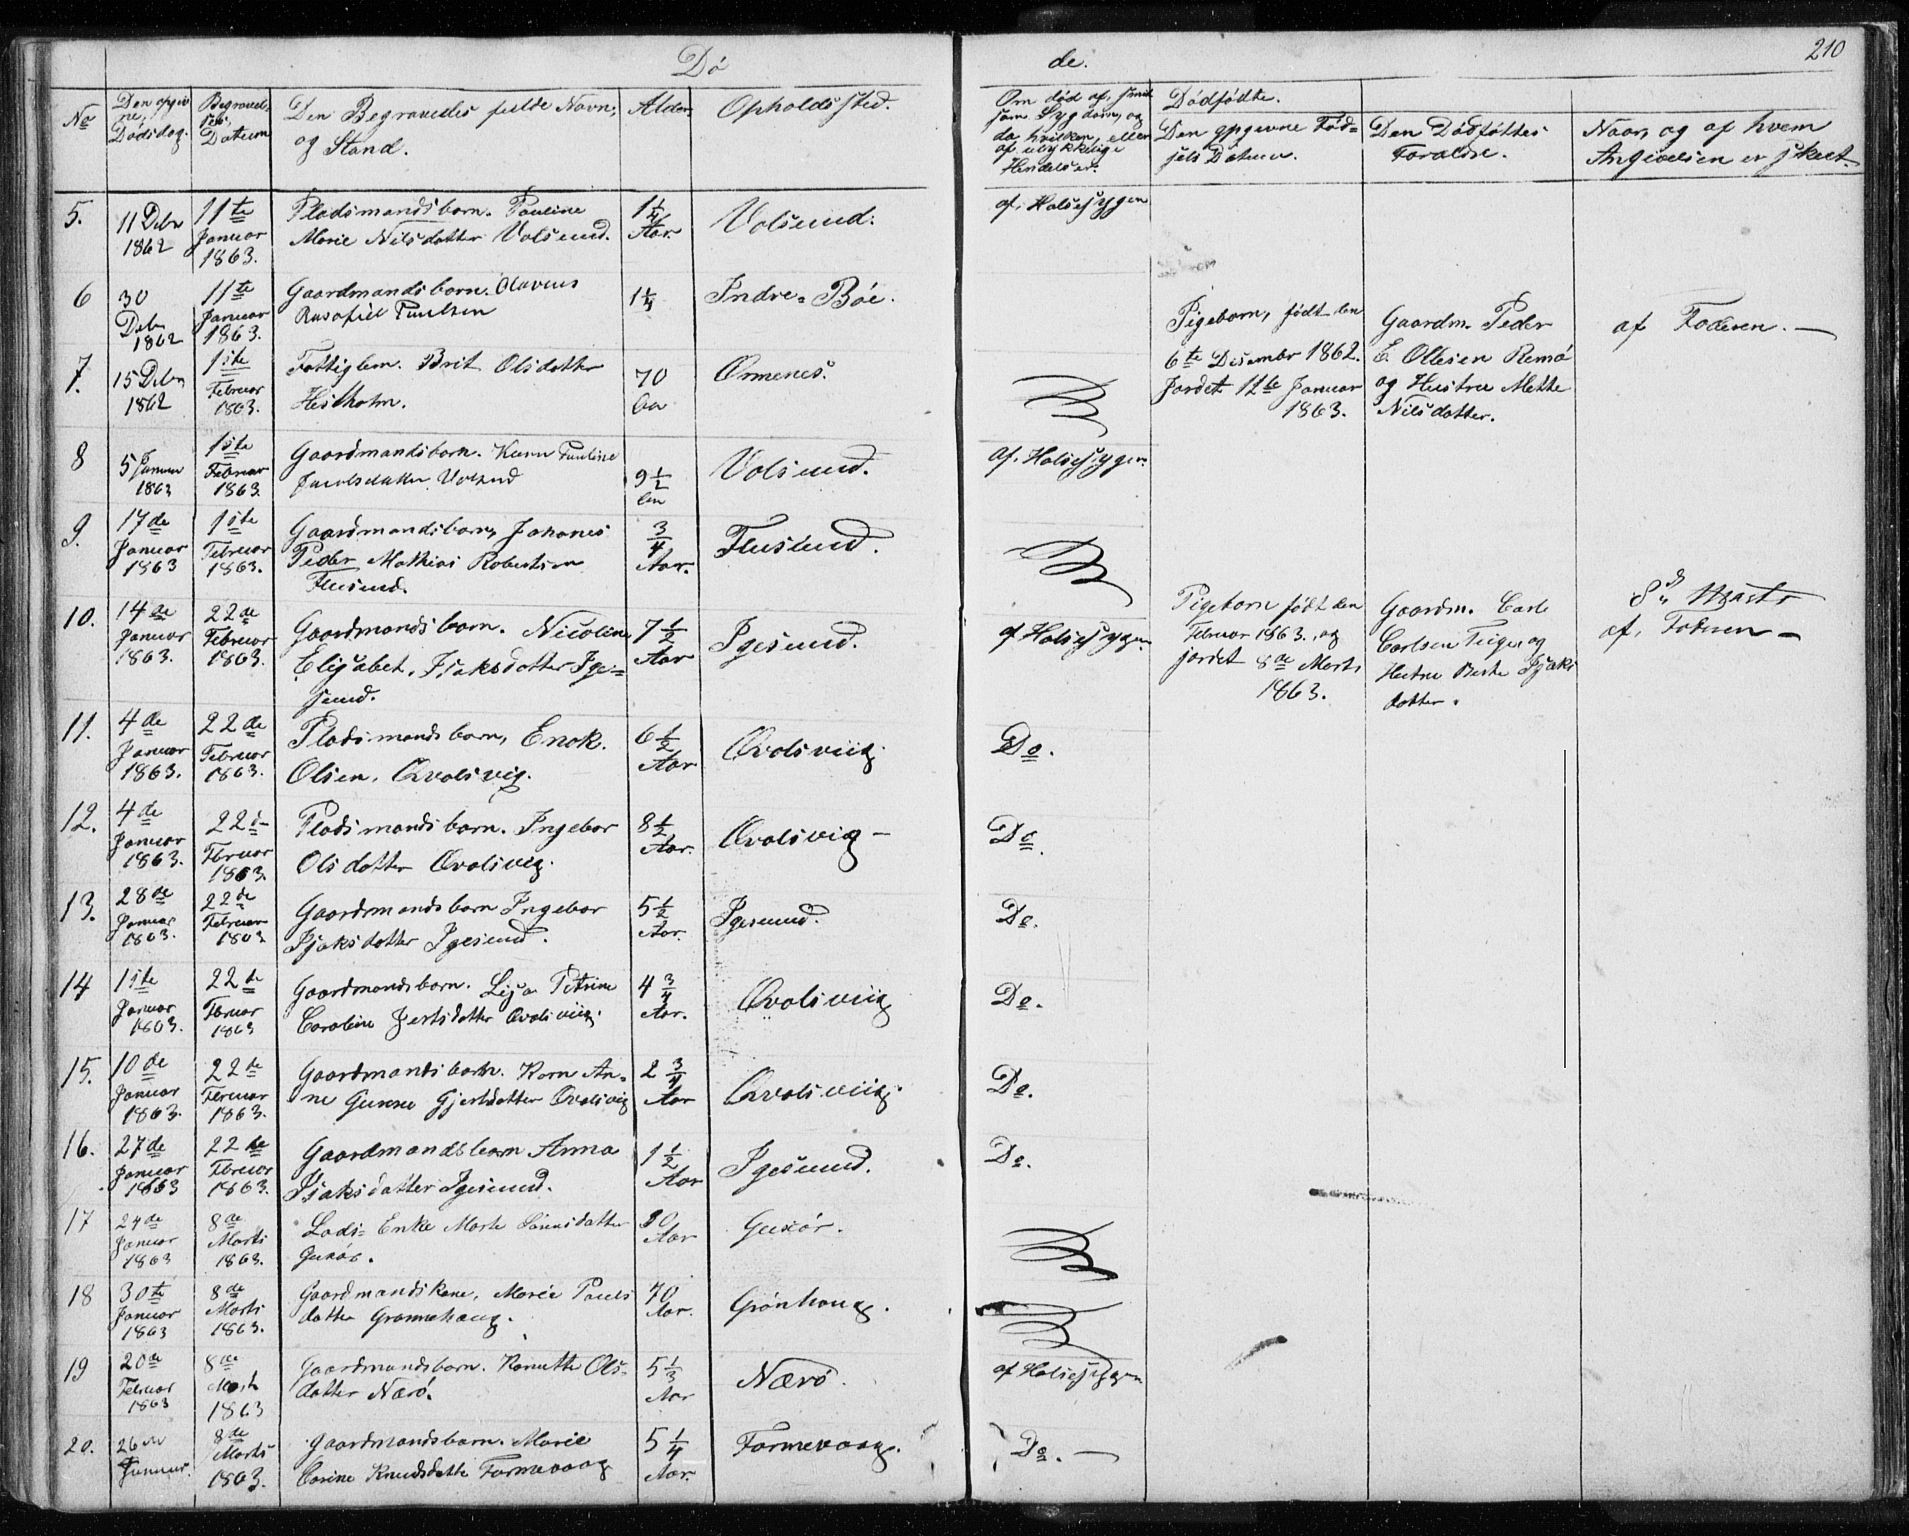 210
Dö de.
No
Den opgivne Dödsdag.
Begravelses Datum
Den Begravedes fulde Navn, og Stand.
Alder.
Opholdssted.
Om død af smitsom Sygdom, og da hvilken, eller af ulykkelige Hendelser.
Dødfødte.
Den opgivne Fødselsdatum.
Den Dødføttes Foraldre.
Naar, og af hvem Angivelsen er skeet.
5. 11 Debr 1862
11te Januar 1863.
Pladsmandsbarn. Pauline
Marie Nilsdatter Volsund.
1 1/4 Aar
Volsund.
af Halsesygen
6 30 Debr 1862
11te Januar 1863.
Gaardmandsbarn. Olavius
Paulsen
1 1/4
Indre-Böe.
Pigebarn, født den
6te Desember 1862.
Jordet 11te Januar
1863.
Gaardm. Peder
E. Ollesen Remö
og Hustru Mette
Nilsdatter.
af Faderen. —
7. 15 Debr 1862
1ste Februar 1863.
Fattiglem. Brit Olsdatter
Hestholm.
70
Ormenes.
8 5 Januar 1863
1ste Februar 1863.
Gaardmandsbarn. Karen Pauline
Jacobsdatter Volsund
9 1/2
Volsund.
af Halsesygen
9. 17de Januar 1863
1ste Februar 1863.
Gaardmandsbarn, Johanes
Peder Mathias Robertsen
Flusund.
3/4 Aar.
Flusund.
10. 14de Januar 1863.
22de Februar 1863.
Gaardmandsbarn. Nicoline
Elisabet. Isaksdatter Ige=
sund.
7 1/2 Aar
Igesund.
af Halsesygen
Pigebarn født den
Februar 1863. og
jordet 8de Marts
1863.
Gaardm. Carl
Carlsen Teige og
Hustru Berte Isaks
datter.
8de Marts
af. Faderen —
11. 4de Januar 1863.
22de Februar 1863.
Pladsmandsbarn, Enok.
Olsen, Qvalsvig.
6 1/2 Aar
Qvalsviig
Do.
12. 4de Januar 1863.
22de Februar 1863.
Pladsmandsbarn. Ingebor
Olsdatter Qvalsvig.
8 1/2 Aar.
Qvalsvig —
Do.
13. 28de Januar 1863.
22de Februar 1863
Gaardmandsbarn Ingebor
Isaksdatter Igesund.
5 1/2 Aar.
Igesund.
Do.
14 1ste Januar 1863.
22de Februar 1863
Gaardmandsbarn. Lisa Petrine
Caroline Jertsdatter Qvalsviig.
4 3/4 Aar.
Qvalsviig
Do.
15. 10de Januar 1863.
22de Februar 1863.
Gaardmandsbarn. Karn An=
ne Gurine Gjertsdatter Qvalsvig
2 3/4 Aar
Qvalsviig.
Do.
16. 27de Januar 1863
22de Februar 1863.
Gaardmandsbarn Anna
Isaksdatter Igesund.
1 1/2 Aar
Igesund.
Do.
17 24de Januar 1863
8de Marts 1863.
Lods= Enke Marte datter
Guxör.
Aar
Guxör.
18 30te Januar 1863
8de Marts 1863.
Gaardmandskone, Marie Pouls
datter Grönnehaug.
70 Aar.
Grönhaug.
19 20de Februar 1863
8de Marts 1863
Gaardmandsbarn. Kanutte Ols=
datter Nærö.
5 1/3 Aar
Nærö.
af Halsesygen
20. 26de Januar.
8de Marts 1863.
Gaardmandsbarn. Marie
Carine Knudsdatte Farmevaag
5 1/4 Aar.
Farmevaag.
Do. —